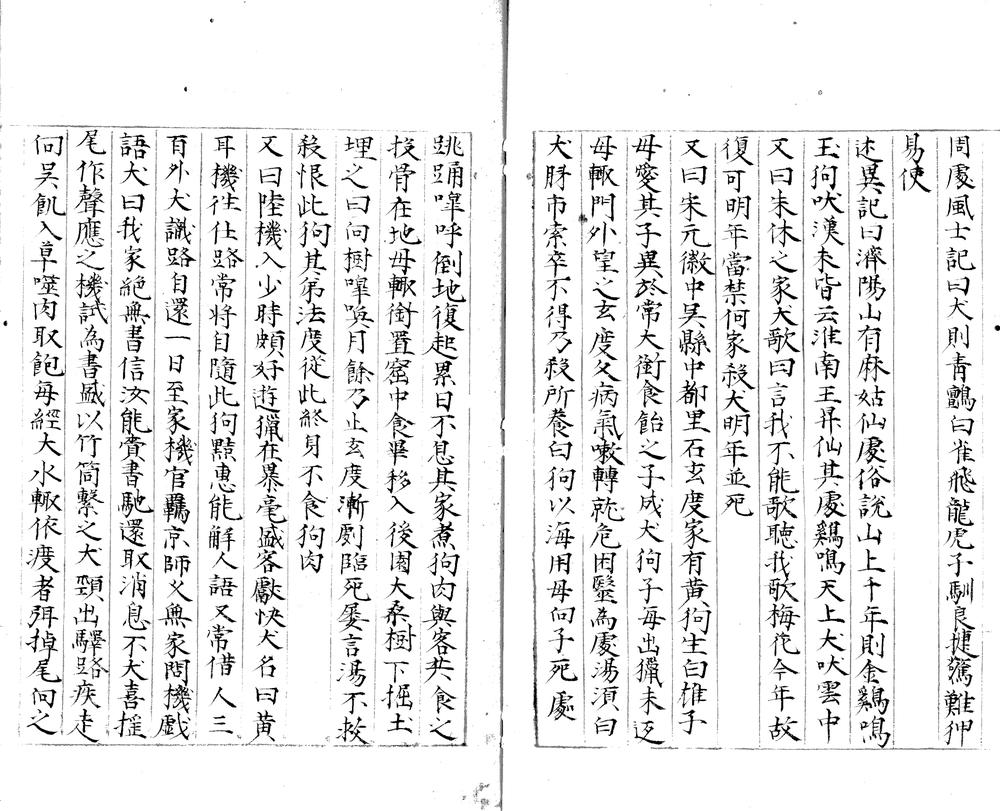 周處風士記曰犬則青鸇白雀飛龍虎子馴良捷驚難狎
易使
述異記曰濟陽山有麻姑仙處俗説山上千年則金鷄鳴
玉狗吠漢末皆云淮南王昇仙其處鷄鳴天上犬吠雲中
又曰朱休之家犬歌曰言我不能歌聽我歌梅花今年故
復可明年當禁何家殺犬明年並死
又曰宋元徽中吳縣中都里石玄度家有黄狗生白惟子
母愛其子異於常犬銜食飴之子成犬狗子每出獵未返
母輙門外望之玄度父病氣嗽轉就危困毉為處湯湏白
犬肺市索卒不得乃殺所養白狗以海用母向子死處
跳踊嘷呼倒地復起累日不息其家煮狗肉與客共食之
投骨在地母輙銜置窋中食畢移入後園大桑樹下掘土
埋之曰向樹嘷喚月餘乃止玄度漸劇臨死屡言湯不救
殺恨此狗其弟法度從此終身不食狗肉
又曰陸機入少時頗好遊獵在暴毫盛客獻快犬名曰黄
耳機徃仕路常將自隨此狗黠惠能解人語又常借人三
百外犬識路自還一日至家機官覊京師乂無家問機戯
語犬曰我家絶無書信汝能賫書馳還取消息不犬喜揺
尾作聲應之機試為書盛以竹筒繫之犬頸出驛路疾走
向吳飢入草噬肉取飽每經大水輙依渡者弭掉尾向之